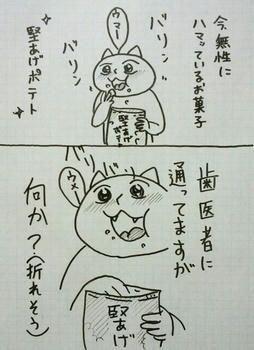 今無性に
ハマっているお菓子
バリン
ウマー
バリン
堅あげポテト
堅あげ
ポテト
歯医者に
通ってますが
ウメー
何か？(折れそう)
堅あげ